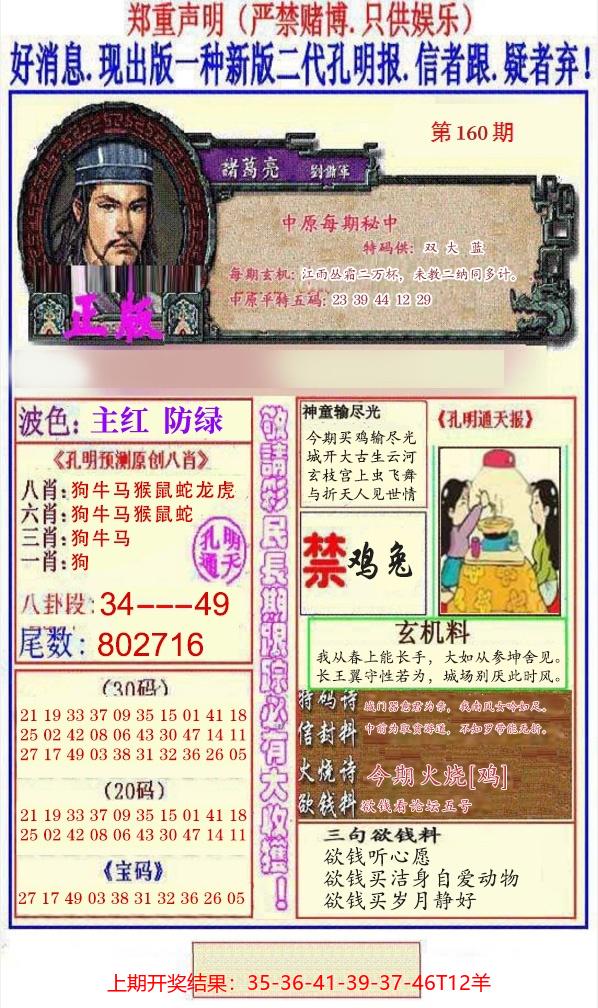 郑重声明（严禁赌博.只供娱乐）
好消息.现出版一种新版二代孔明报.信者跟.疑者弃！
第160期
諸葛亮 劉備軍
中原每期秘中
特码供：双 大 蓝
每期玄机：江雨丛霜二万杯，未教二纳同多计。
中原平特五码：23 39 44 12 29
正版
波色：主红 防绿
《孔明预测原创八肖》
八肖：狗牛马猴鼠蛇龙虎
六肖：狗牛马猴鼠蛇
三肖：狗牛马
一肖：狗
孔明
通天
八卦段：34---49
尾数：802716
（30码）
21 19 33 37 09 35 15 01 41 18
25 02 42 08 06 43 30 47 14 11
27 17 49 03 38 31 32 36 26 05
（20码）
21 19 33 37 09 35 15 01 41 18
25 02 42 08 06 43 30 47 14 11
《宝码》
27 17 49 03 38 31 32 36 26 05
敬請彩民長期跟踪必有大收獲！
神童输尽光
今期买鸡输尽光
城开大古生云河
玄枝宫上虫飞舞
与折天人见世情
《孔明通天报》
禁 鸡兔
玄机料
我从春上能长手，大如从参坤舍见。
长王翼守性若为，城场别厌此时风。
特码诗 城门器意君为亲，我南风女吟如尽。
信封料 中前为取贫游道，不知罗带能无折。
火烧诗 今期火烧[鸡]
欲钱料 欲钱看论坛五号
三句欲钱料
欲钱听心愿
欲钱买洁身自爱动物
欲钱买岁月静好
上期开奖结果：35-36-41-39-37-46T12羊